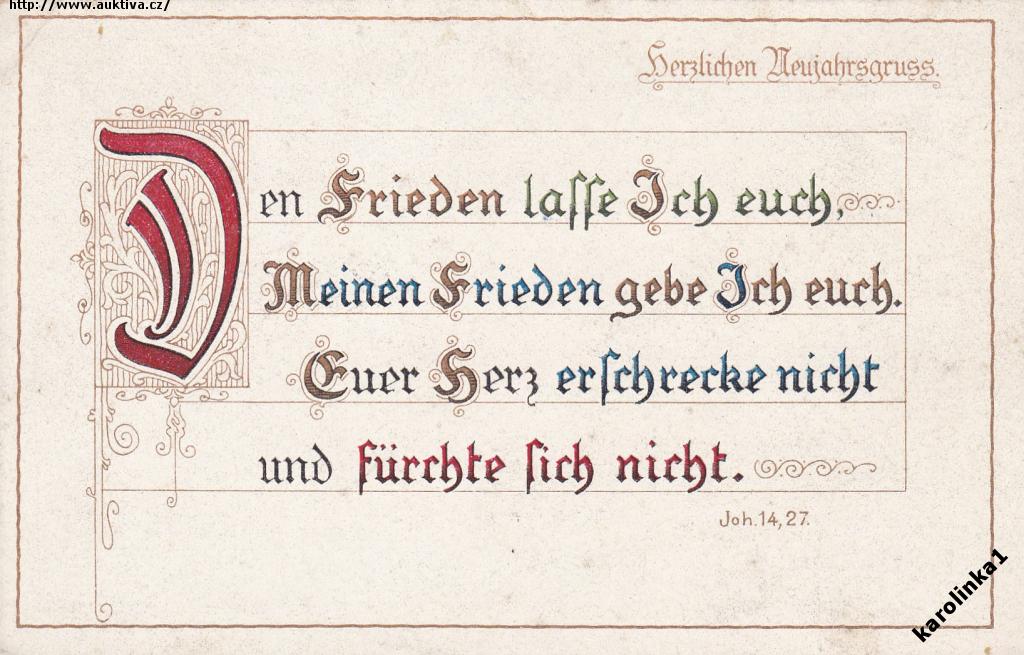 http://www.auktiva.cz/
Herzlichen Neujahrsgruss.
Den Frieden laſſe Ich euch,
Meinen Frieden gebe Ich euch.
Euer Herz erſchrecke nicht
und fürchte ſich nicht.
Joh. 14, 27.
karolinka1